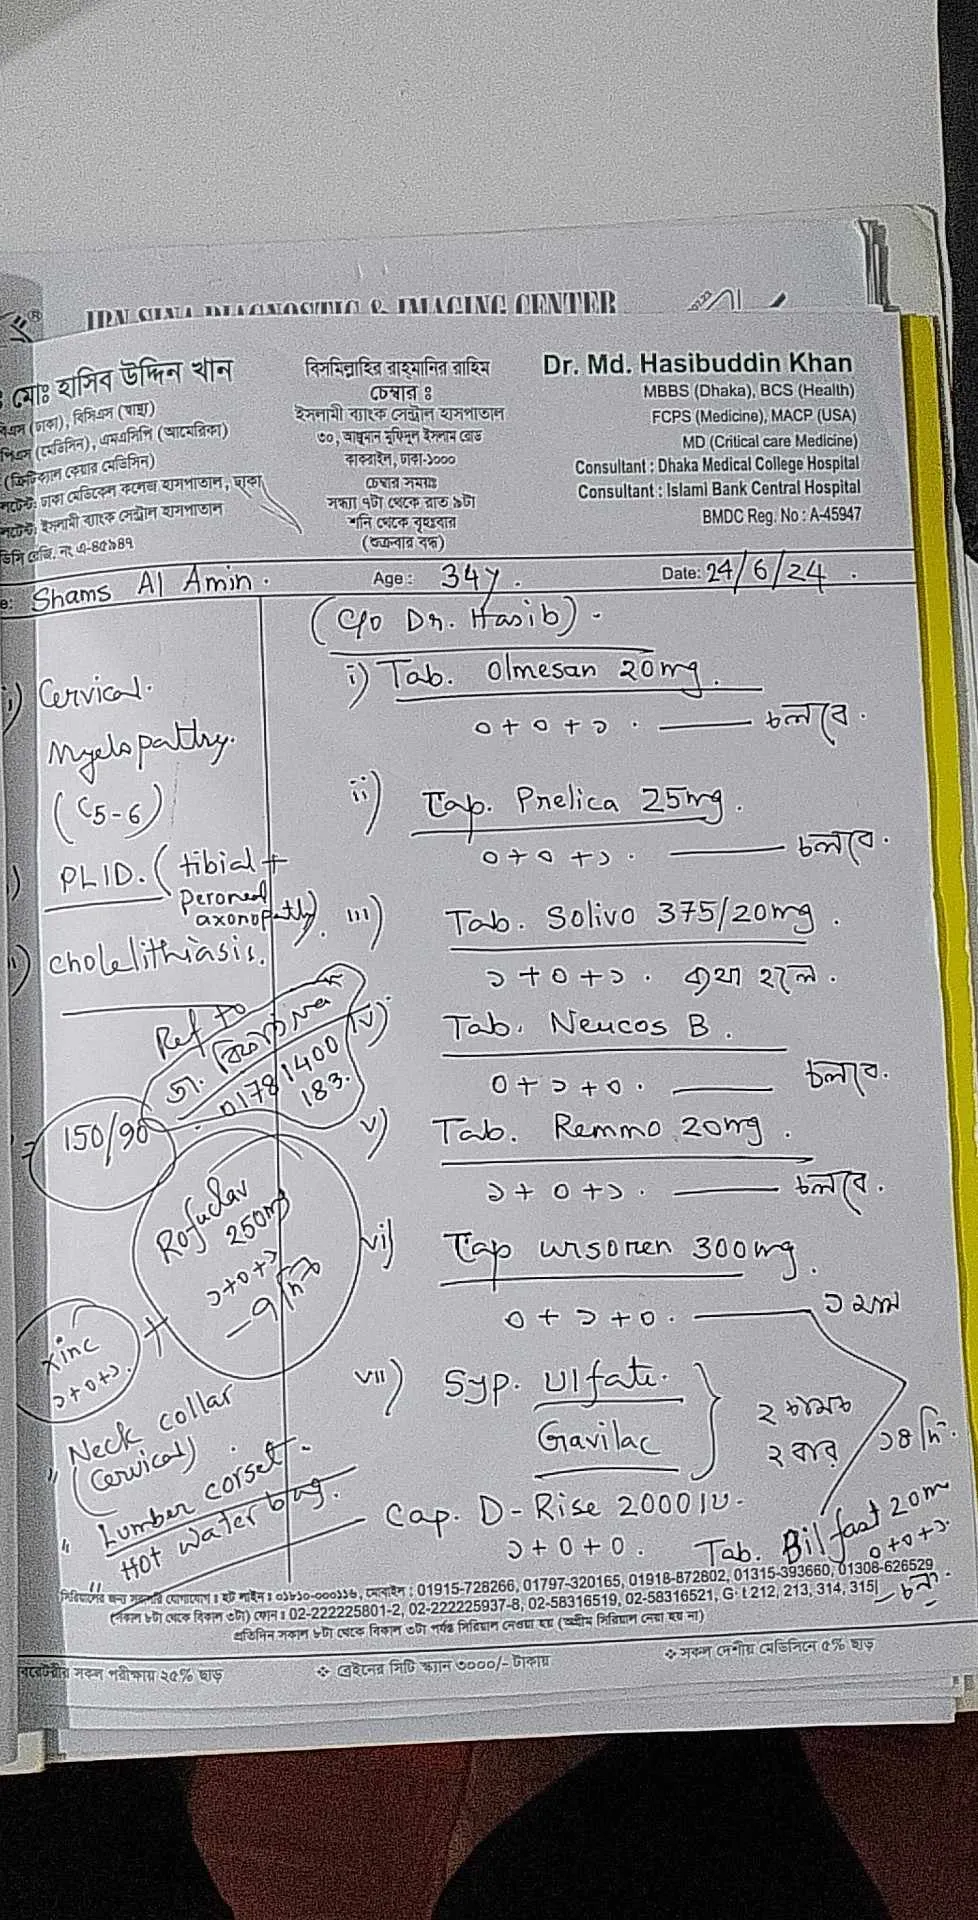 IBN SINA DIAGNOSTIC & IMAGING CENTER
মোঃ হাসিব উদ্দিন খান
(ঢাকা), বিসিএস (স্বাস্থ্য)
(মেডিসিন), এমএসিপি (আমেরিকা)
(ক্রিটিক্যাল কেয়ার মেডিসিন)
ঢাকা মেডিকেল কলেজ হাসপাতাল, ঢাকা
ইসলামী ব্যাংক সেন্ট্রাল হাসপাতাল
রেজি. নং এ-৪৫৯৪৭
বিসমিল্লাহির রাহমানির রাহিম
চেম্বার ঃ
ইসলামী ব্যাংক সেন্ট্রাল হাসপাতাল
৩০, আঞ্জুমান মুফিদুল ইসলাম রোড
কাকরাইল, ঢাকা-১০০০
চেম্বার সময়ঃ
সন্ধ্যা ৭টা থেকে রাত ৯টা
শনি থেকে বৃহঃবার
(শুক্রবার বন্ধ)
Dr. Md. Hasibuddin Khan
MBBS (Dhaka), BCS (Health)
FCPS (Medicine), MACP (USA)
MD (Critical care Medicine)
Consultant : Dhaka Medical College Hospital
Consultant : Islami Bank Central Hospital
BMDC Reg. No : A-45947
Shams Al Amin. Age : 34y. Date: 24/6/24.
(C/o Dr. Hasib).
i) Cervical
Myelopathy.
(C5-6)
PLID. (tibial +
peroneal
axonopathy).
cholelithiasis.
Ref to
ডা.
01781400
183.
150/90
Rofuclav
250mg
১+০+১
—৭ দিন
+
zinc
১+০+১.
" Neck collar
(Cervical)
" Lumber corset.
" Hot water bag.
i) Tab. Olmesan 20mg.
০+০+১. —— চলবে.
ii) Cap. Prelica 25mg.
০+০+১. —— চলবে.
iii) Tab. Solivo 375/20mg.
১+০+১. ব্যথা হলে.
iv) Tab. Neucos B.
০+১+০. —— চলবে.
v) Tab. Remmo 20mg.
১+০+১. —— চলবে.
vi) Cap ursoren 300mg.
০+১+০. —— ১ মাস
vii) Syp. Ulfate.
Gavilac
২ চামচ
২ বার
১৪ দিন.
Cap. D-Rise 2000 IU.
১+০+০.
Tab. Bilfast 20m
০+০+১.
সিরিয়ালের জন্য সরাসরি যোগাযোগ ঃ হট লাইন ঃ ০৯৬১০-০০০১১৬, মোবাইল : 01915-728266, 01797-320165, 01918-872802, 01315-393660, 01308-626529
(সকাল ৮টা থেকে বিকাল ৩টা) ফোন : 02-222225801-2, 02-222225937-8, 02-58316519, 02-58316521, 212, 213, 314, 315
প্রতিদিন সকাল ৮টা থেকে বিকাল ৩টা পর্যন্ত সিরিয়াল নেওয়া হয় (অগ্রীম সিরিয়াল নেয়া হয় না)
সকল পরীক্ষায় ২৫% ছাড়
❖ ব্রেইনের সিটি স্ক্যান ৩০০০/- টাকায়
❖ সকল দেশীয় মেডিসিনে ৫% ছাড়